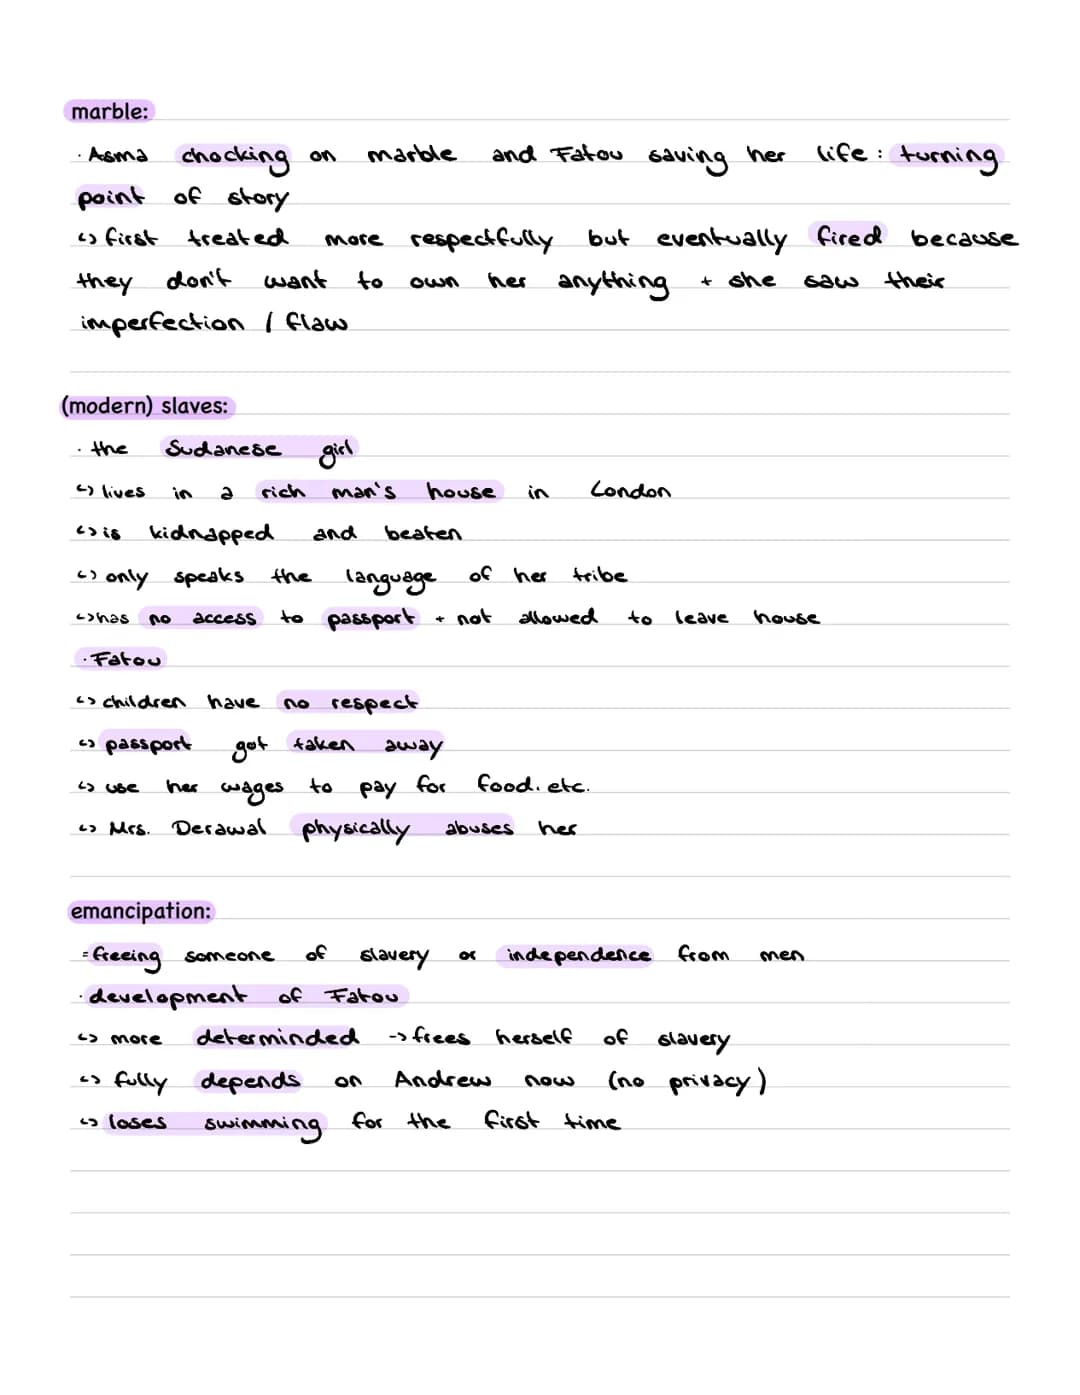 marble:
· Asma chocking on marble and Fatou saving her life : turning
point of story
↳ first treated more respectfully but eventually fired because
they don't want to own her anything + she saw their
imperfection / flaw
(modern) slaves:
· the Sudanese girl
↳ lives in a rich man's house in London
↳ is kidnapped and beaten
↳ only speaks the language of her tribe
↳ has no access to passport + not allowed to leave house
· Fatou
↳ children have no respect
↳ passport got taken away
↳ use her wages to pay for food. etc.
↳ Mrs. Derawal physically abuses her
emancipation:
= freeing someone of slavery or independence from men
· development of Fatou
↳ more determinded -> frees herself of slavery
↳ fully depends on Andrew now (no privacy)
↳ loses swimming for the first time